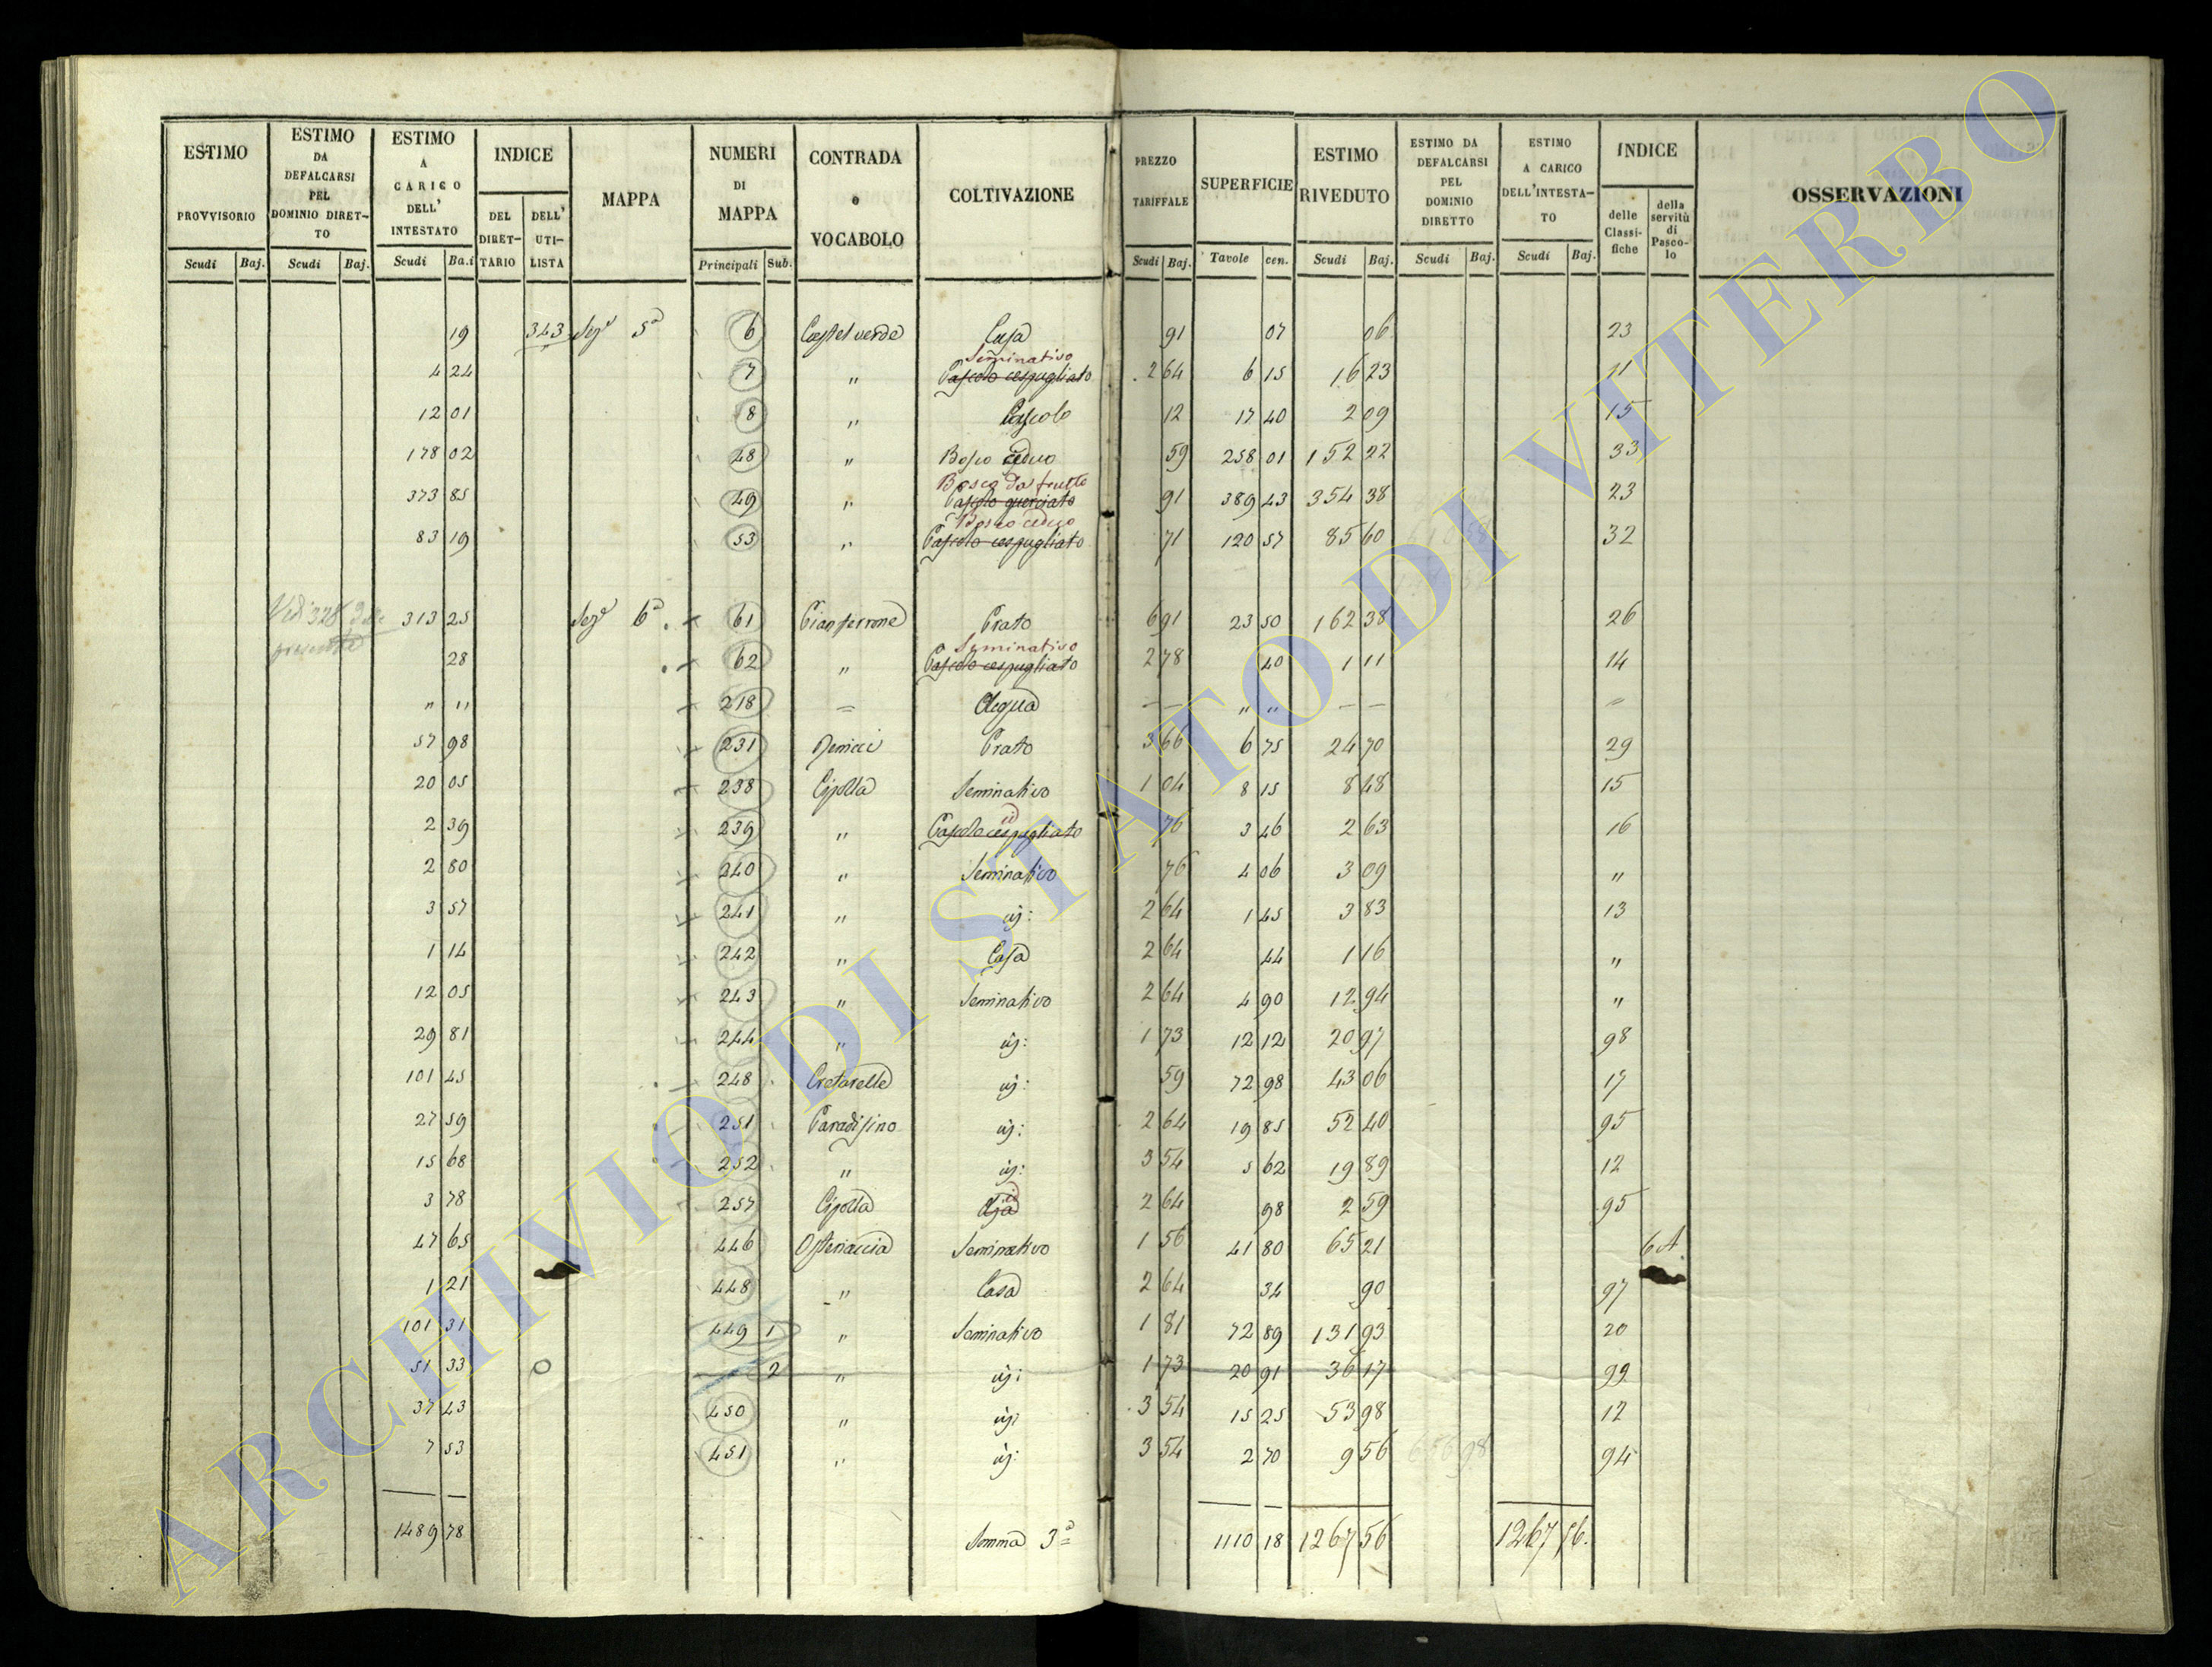 ESTIMO PROVVISORIO Scudi Baj.
ESTIMO DA DEFALCARSI PEL DOMINIO DIRET-TO Scudi Baj.
ESTIMO A CARICO DELL' INTESTATO Scudi Ba.i
INDICE DEL DIRET-TARIO DELL' UTI-LISTA
MAPPA
NUMERI DI MAPPA Principali Sub.
CONTRADA o VOCABOLO
COLTIVAZIONE
PREZZO TARIFFALE Scudi Baj.
SUPERFICIE Tavole cen.
ESTIMO RIVEDUTO Scudi Baj.
ESTIMO DA DEFALCARSI PEL DOMINIO DIRETTO Scudi Baj.
ESTIMO A CARICO DELL'INTESTA-TO Scudi Baj.
INDICE delle Classi-fiche della servitù di Pasco-lo
OSSERVAZIONI
19 343 Sez.e 5a 6 Castel verde Casa 91 07 06 23
Seminativo
4 24 7 " Pascolo cespugliato 2 64 6 15 16 23 11
12 01 8 " Pascolo 12 17 40 2 09 15
178 02 48 " Bosco ceduo 59 258 01 152 22 33
Bosco da frutto
373 85 49 " Pascolo querciato 91 389 43 354 38 23
Bosco ceduo
83 19 53 " Pascolo cespugliato 71 120 57 85 60 32
Vedi 328
313 25 Sez.e 6a 61 Prato 6 91 23 50 162 38 26
Seminativo
28 62 " Pascolo cespugliato 2 78 40 1 11 14
" " 218 = Acqua — — " " — — "
57 98 231 Prato 3 66 6 75 24 70 29
20 05 238 Cipolla Seminativo 1 04 8 15 8 48 15
id
2 39 239 " Pascolo cespugliato 76 3 46 2 63 16
2 80 240 " Seminativo 76 4 06 3 09 "
3 57 241 " id: 2 64 1 45 3 83 13
1 14 242 " Casa 2 64 44 1 16 "
12 05 243 " Seminativo 2 64 4 90 12 94 "
29 81 244 " id: 1 73 12 12 20 97 98
101 45 248 Cretarelle id: 59 72 98 43 06 17
27 59 251 Paradisino id: 2 64 19 85 52 40 95
15 68 252 " id: 3 54 5 62 19 89 12
3 78 257 Cipolla Aja 2 64 98 2 59 95
47 65 446 Osteriaccia Seminativo 1 56 41 80 65 21 6 A.
1 21 448 " Casa 2 64 34 90 97
101 31 449 1 " Seminativo 1 81 72 89 131 93 20
51 33 2 " id: 1 73 20 91 36 17 99
37 43 450 " id: 3 54 15 25 53 98 12
7 53 451 " id: 3 54 2 70 9 56 656 98 94
1489 78 Somma 3a 1110 18 1267 56 1267 56.
ARCHIVIO DI STATO DI VITERBO